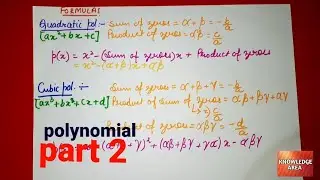 FORMULAS
Quadratic pol:- Sum of zeros = α + β = -b/a
[ax²+bx+c] Product of zeros = αβ = c/a
p(x) = x² - (Sum of zeroes)x + Product of zeroes
= x² - (α+β)x + αβ
Cubic pol:- Sum of zeroes = α + β + γ = -b/a
[ax³+bx²+cx+d] Product of Sum of zeroes = αβ + βγ + αγ
= c/a
of zeroes = αβγ = -d/a
polynomial
part 2
+ γ)² + (αβ + βγ + γα)x - αβγ
KNOWLEDGE
AREA